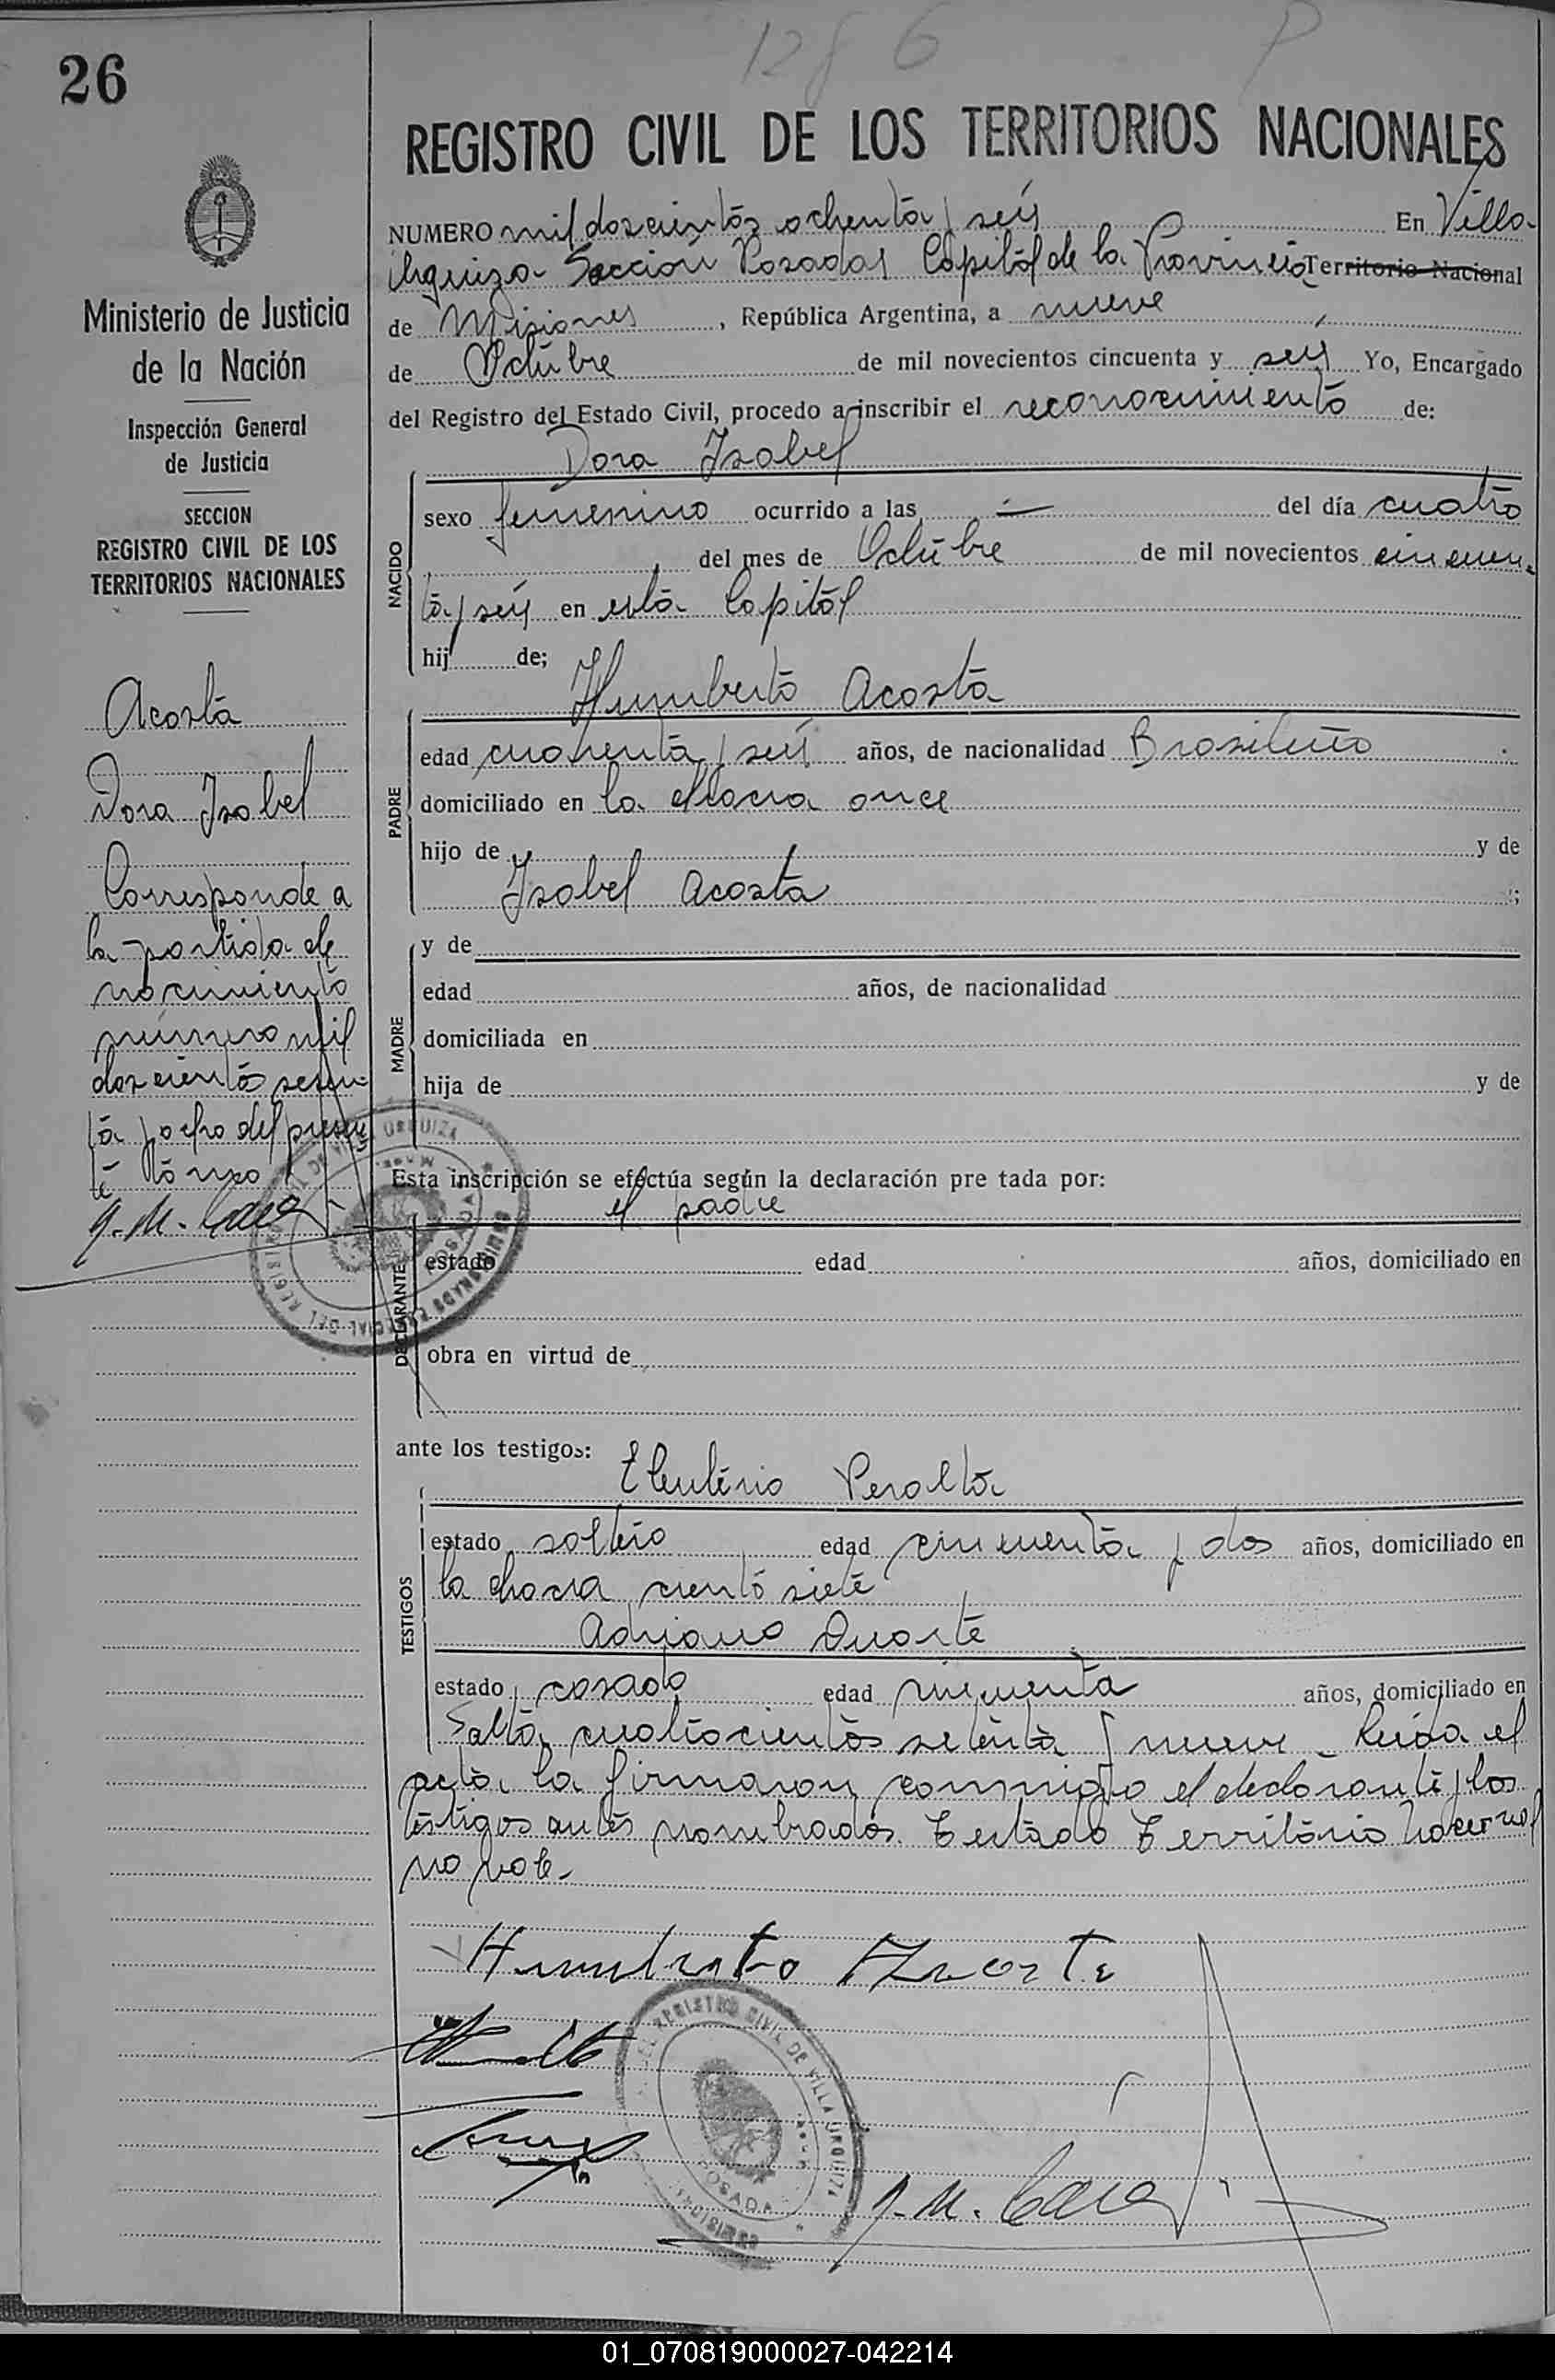 1286 P
26
REGISTRO CIVIL DE LOS TERRITORIOS NACIONALES
NUMERO mil doscientos ochenta y seis En Villa
Urquiza - Sección Posadas Capital de la Provincia Territorio Nacional
de Misiones, República Argentina, a nueve
de Octubre de mil novecientos cincuenta y seis Yo, Encargado
del Registro del Estado Civil, procedo a inscribir el reconocimiento de:
Dora Isabel
NACIDO
sexo femenino ocurrido a las — del día cuatro
del mes de Octubre de mil novecientos cincuen-
ta y seis en esta Capital
hij de;
Humberto Acosta
PADRE
edad cuarenta y seis años, de nacionalidad Brasileño
domiciliado en la chacra once
hijo de y de
Isabel Acosta ;
MADRE
y de
edad años, de nacionalidad
domiciliada en
hija de y de
Esta inscripción se efectúa según la declaración pre tada por:
el padre
DECLARANTE
estado edad años, domiciliado en
obra en virtud de
ante los testigos:
Eleuterio Peralta
TESTIGOS
estado soltero edad cincuenta y dos años, domiciliado en
la chacra ciento siete
Adriano Duarte
estado casado edad cincuenta años, domiciliado en
Salta cuatrocientos setenta y nueve - Leída el
acta la firmaron conmigo el declarante y los
testigos antes nombrados. Testado Territorio Nacional
no vale -
Humberto Acosta
Ministerio de Justicia
de la Nación
Inspección General
de Justicia
SECCION
REGISTRO CIVIL DE LOS
TERRITORIOS NACIONALES
Acosta
Dora Isabel
Corresponde a
la partida de
nacimiento
número mil
doscientos sesen-
ta y ocho del presen
te tomo
REGISTRO CIVIL DE VILLA URQUIZA
POSADAS
MISIONES
01_070819000027-042214